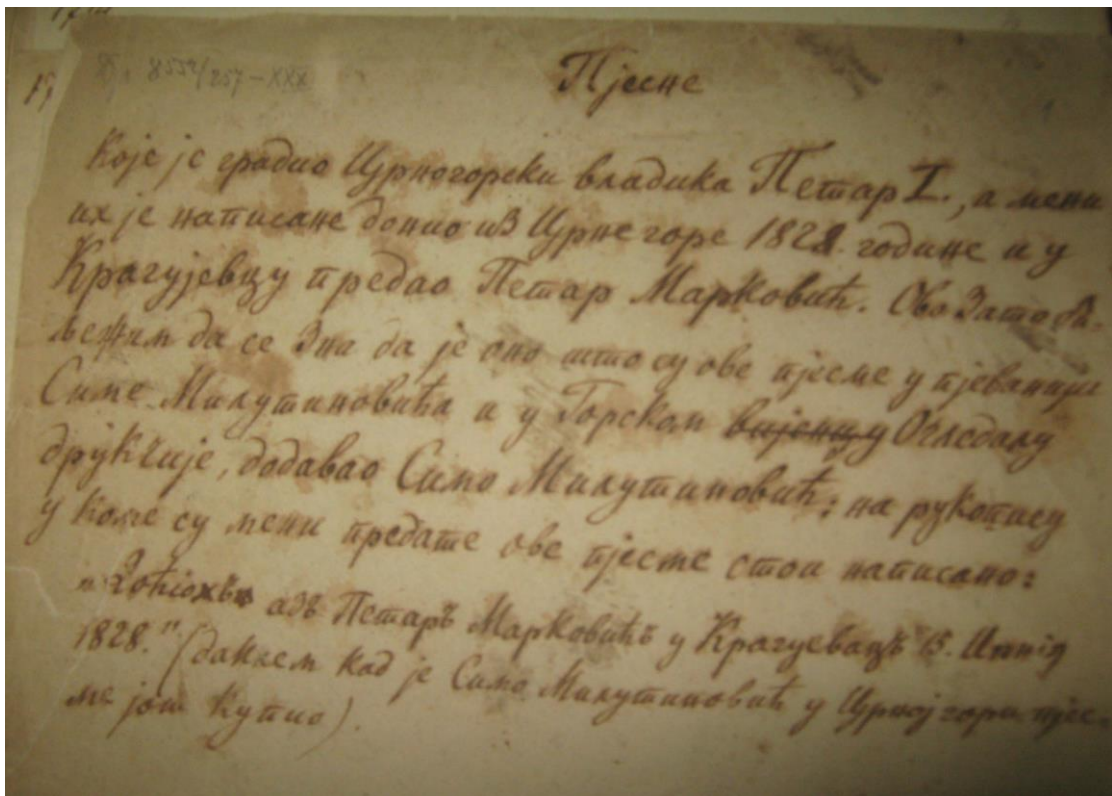 8552/257-XXX
Пјесне
Које је градио Црногорски владика Петар I., а мени
их је написане донио из Црне горе 1828. године и у
Крагујевцу предао Петар Марковић. Ово зато би-
љежим да се зна да је оно што су ове пјесме у пјеванији
Симе Милутиновића и у Горском вијенцу Огледалу
друкчије, додавао Симо Милутиновић; на рукопису
у коме су мени предате ове пјесме стои написано:
азъ Петаръ Марковићъ у Крагуевацъ 15.
1828." (дакле кад је Симо Милутиновић у Црној гори пјес-
ме још купио).